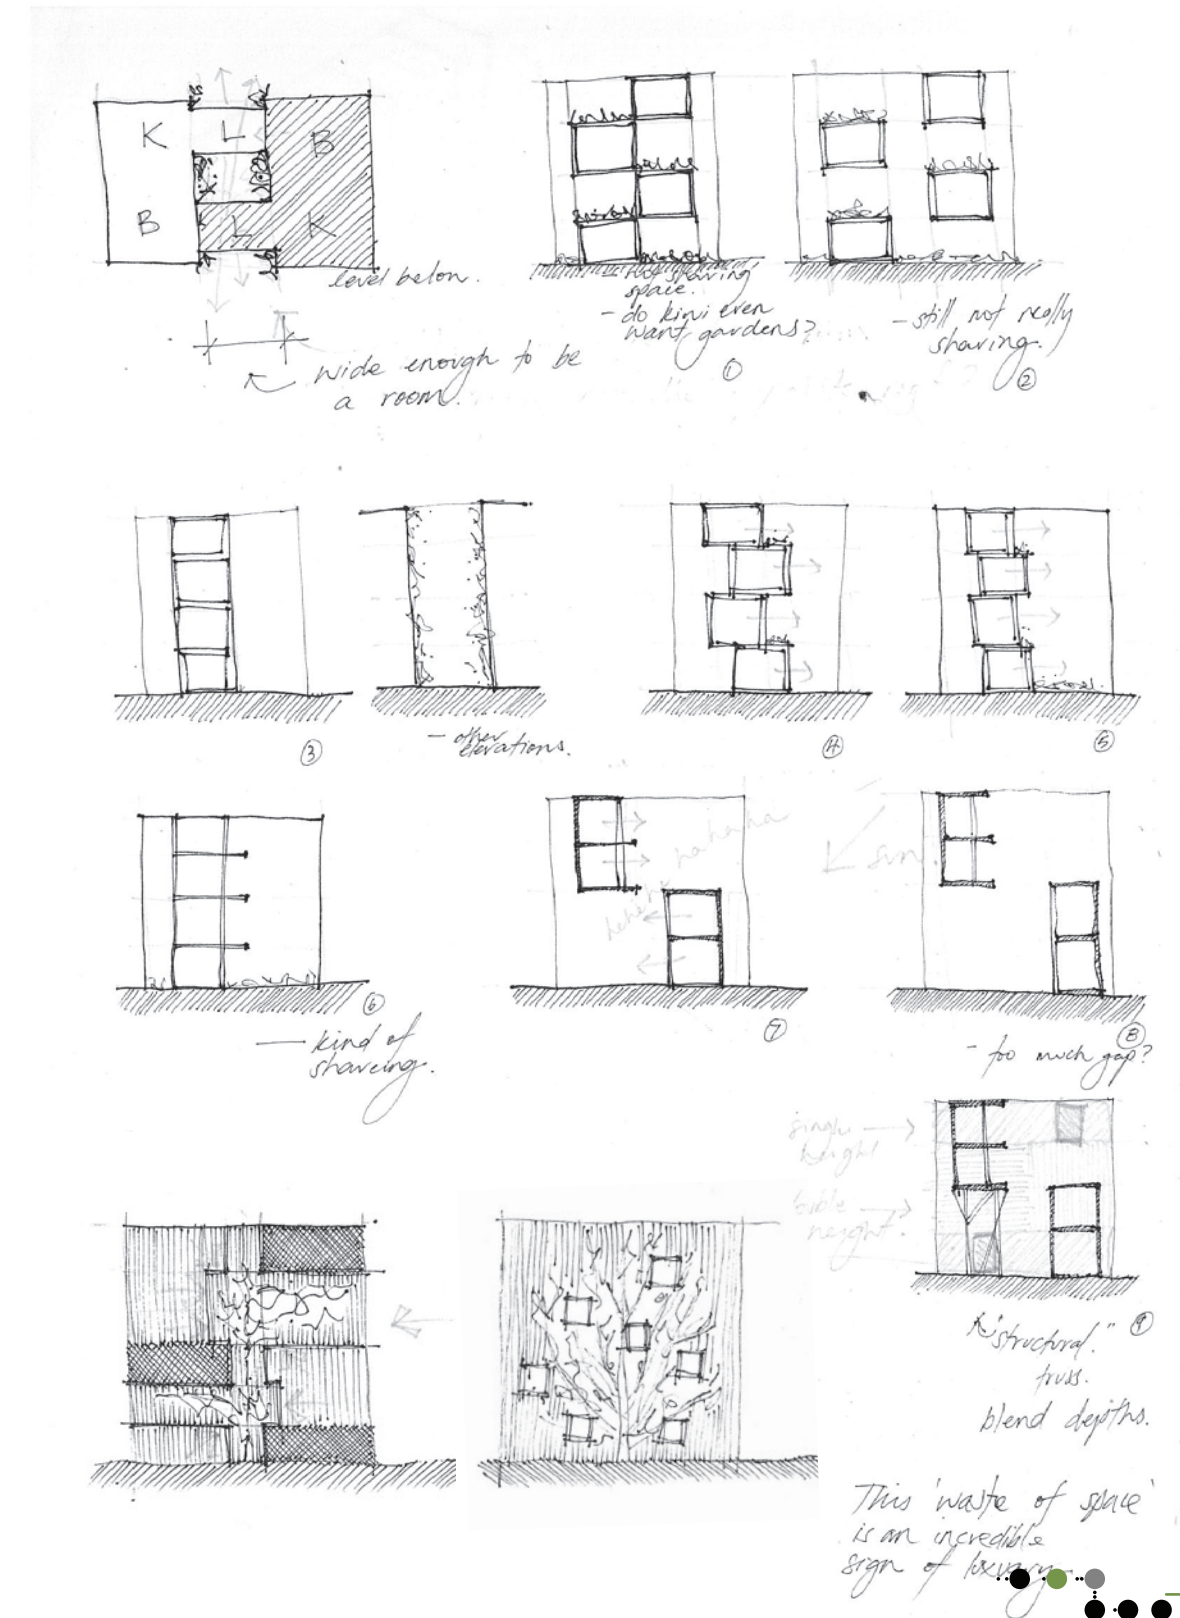 K
L
B
B
L
K
level below.
wide enough to be
a room.
- not sharing
space.
- do kiwi even
want gardens?
①
- still not really
sharing.
②
③
- other
elevations.
④
⑤
⑥
— kind of
sharcing.
hahaha
hehehe
⑦
sun!
⑧
- too much gap?
single
height
height.
⑨
"structural."
truss.
blend depths.
This 'waste of space'
is an incredible
sign of luxuary